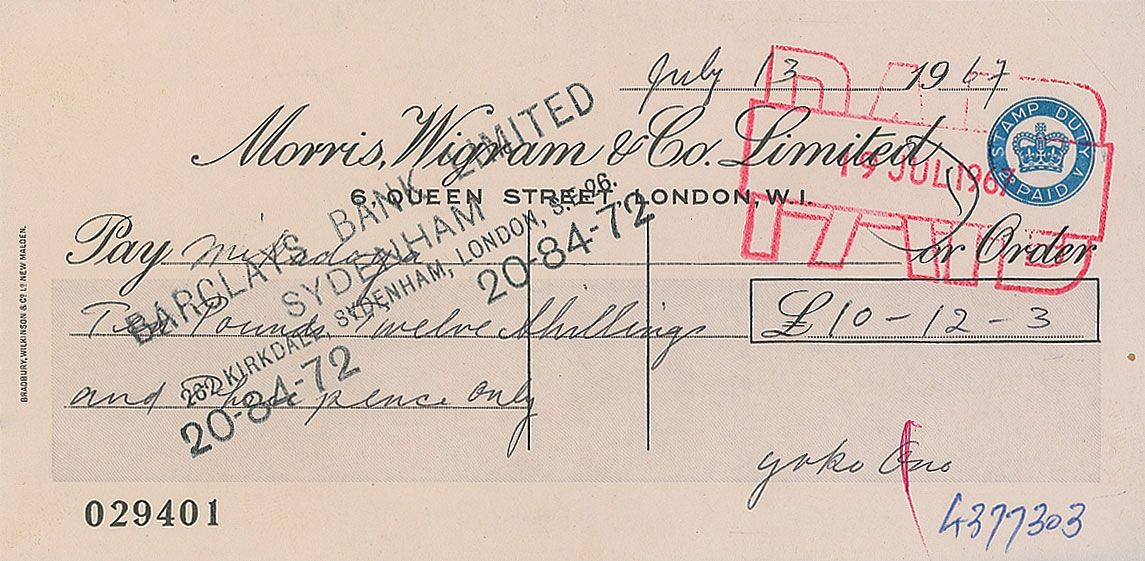 July 13 1967
Morris, Wigram & Co. Limited
6, QUEEN STREET, LONDON, W.I.
STAMP DUTY
2D PAID
PAID
19 JUL 1967
PAID
Pay or Order
Ten Pounds Twelve Shillings
£10-12-3
and Three pence only
BARCLAYS BANK LIMITED
SYDENHAM
262 KIRKDALE, SYDENHAM, LONDON, S.E.26.
20-84-72
20-84-72
yoko Ono
029401
4377303
BRADBURY, WILKINSON & Co. LD. NEW MALDEN.